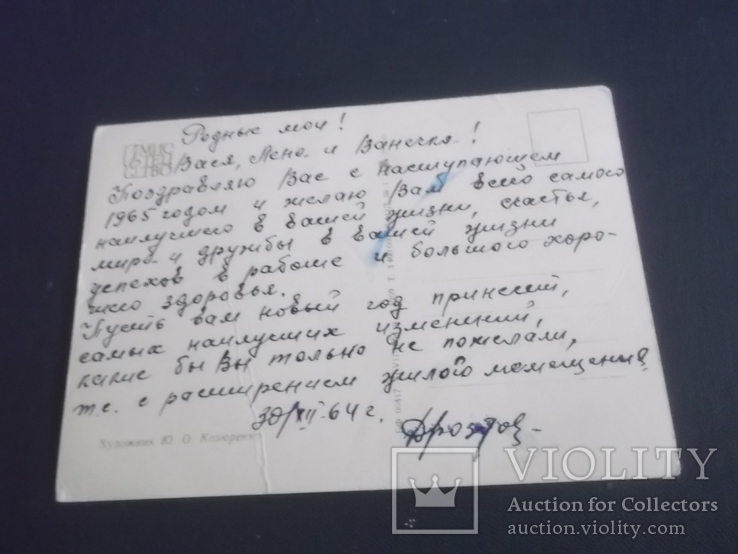 Родные мои!
Вася, Лена и Ванечка!
Поздравляю Вас с наступающем
1965 годом и желаю Вам всего самого
наилучшего в вашей жизни, счастья,
мира и дружбы в вашей жизни
успехов в работе и большого хоро-
шего здоровья.
Пусть вам новый год принесет,
самых наилучших изменений,
какие бы Вы только не пожелали,
т.е. с расширением жилого помещения.
30/XII-64 г.
Дроздов
ИС
КУС
СТВО
Художник Ю. О.
VIOLITY
Auction for Collectors
auction.violity.com